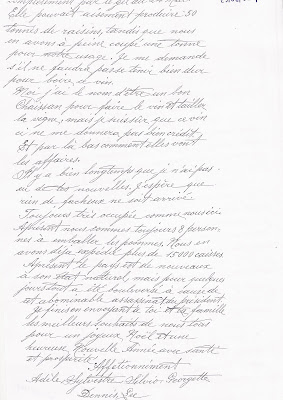 Elle pouvait aisément produire 30
tonnes de raisins, tandis que nous
en avons à peine coupé une tonne
pour notre usage. Je me demande
s'il ne faudra pas se tenir bien dur
pour boire de vin.
Moi j'ai le nom d'être un bon
pour faire le vin et tailler
la vigne, mais je suis sûr que ce vin
ci ne me donnera pas bien crédit,
Et par là bas comment elles vont
les affaires.
Il y a bien longtemps que je n'ai pas
de tes nouvelles. J'espère que
rien de facheux ne soit arrivé
Toujours très occupés comme nous ici.
Apresent nous sommes toujours 8 person-
nes à emballer les pommes. Nous en
avons déjà expédié plus de 15000 caisses.
Apresent le pays est de nouveaux
à son état naturel, mais pour quelques
jours tout a été bouleversé à cause de
cet abominable assassinat du président.
Je finis en envoyant à toi et ta famille
les meilleurs souhaits de nous tous
pour un joyeux Noël et une
heureuse Nouvelle Année avec santé
et prospérité.
Affectionnément
Adèle Sylvestre Silvio Georgette
Dennis Lee